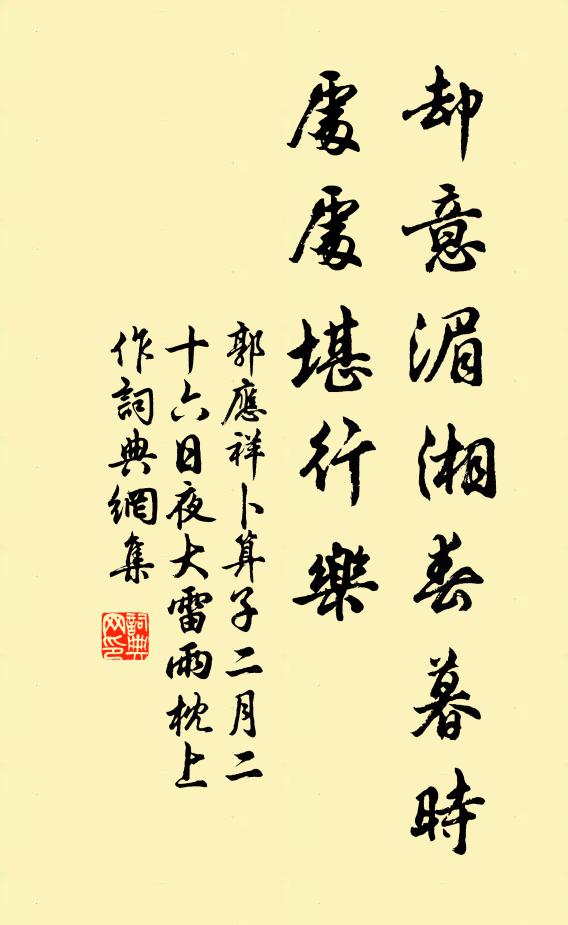 却意湄湘春暮時
處處堪行樂
郭應祥卜算子二月二
十六日夜大雷雨枕上
作詞典網集
詞典網印